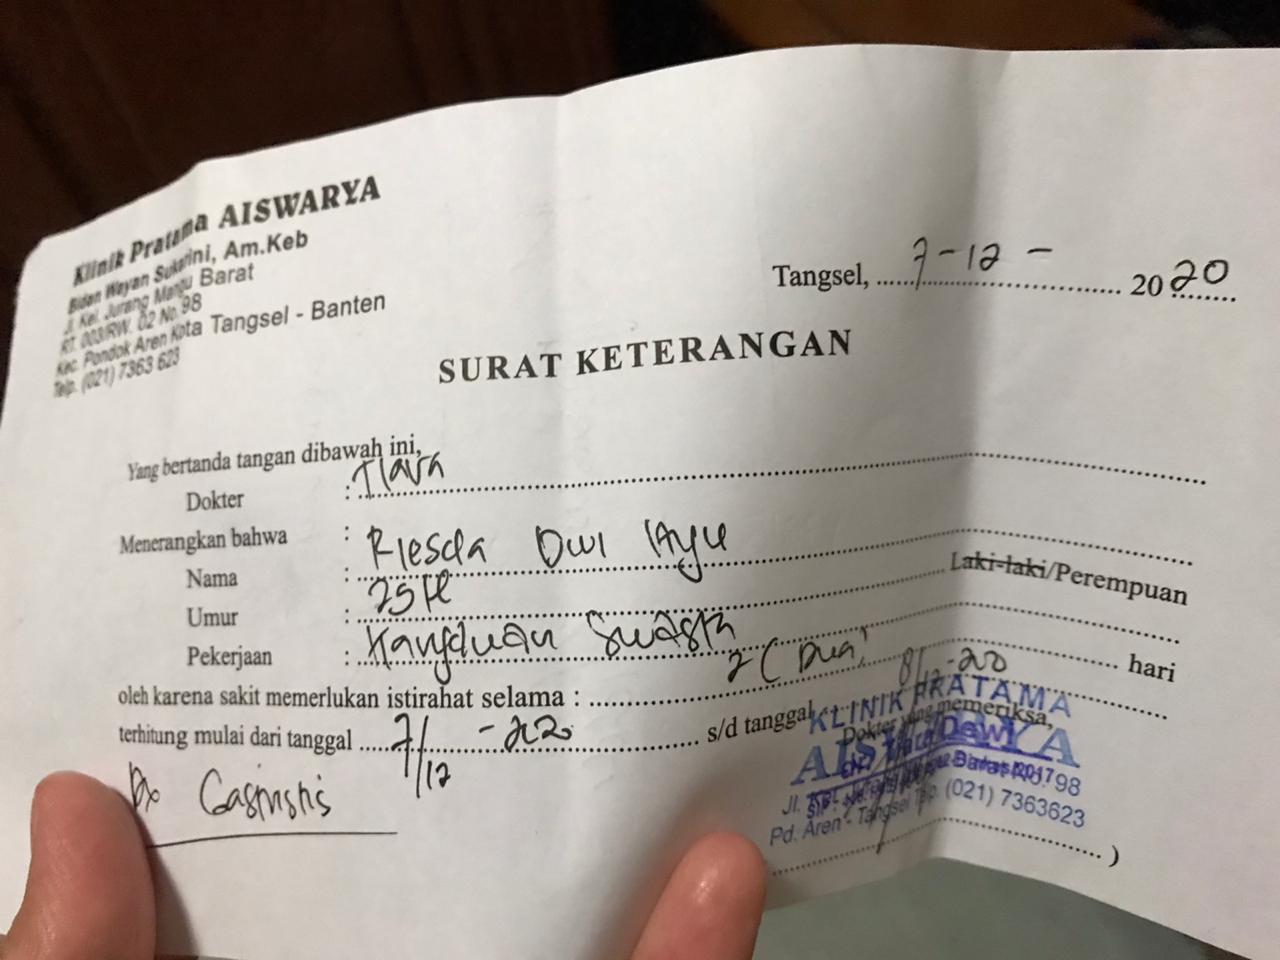 Klinik Pratama AISWARYA
Bidan Wayan Sukarini, Am.Keb
Jl. Kel. Jurang Mangu Barat
RT. 003/RW. 02 No. 98
Kec. Pondok Aren Kota Tangsel - Banten
Telp. (021) 7363 623
Tangsel, 7-12 - 2020
SURAT KETERANGAN
Yang bertanda tangan dibawah ini,
Dokter : Tiara
Menerangkan bahwa :
Nama : Riesda Dwi Ayu Laki-laki/Perempuan
Umur : 25
Pekerjaan : Swasta
oleh karena sakit memerlukan istirahat selama : 2 (Dua) hari
terhitung mulai dari tanggal 7/12 -2020 s/d tanggal 8/12-2020
Dokter yang memeriksa,
KLINIK PRATAMA
AISWARYA
Pd. Aren - Tangsel Telp. (021) 7363623
Dx Gastritis
)